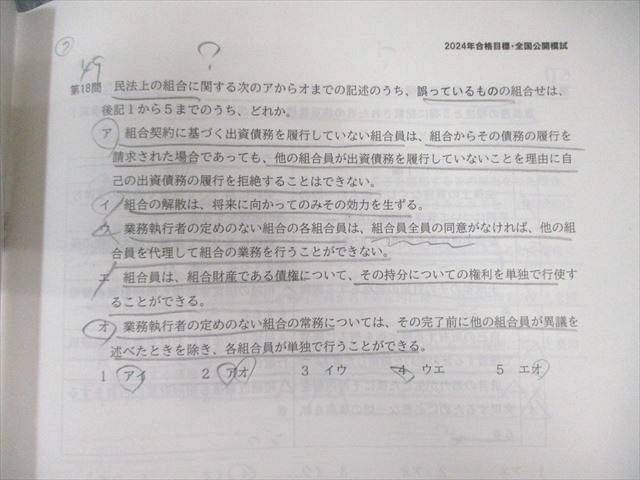 2024年合格目標・全国公開模試
?
49
第18問 民法上の組合に関する次のアからオまでの記述のうち、誤っているものの組合せは、
後記1から5までのうち、どれか。
ア 組合契約に基づく出資債務を履行していない組合員は、組合からその債務の履行を
請求された場合であっても、他の組合員が出資債務を履行していないことを理由に自
己の出資債務の履行を拒絶することはできない。
イ 組合の解散は、将来に向かってのみその効力を生ずる。
ウ 業務執行者の定めのない組合の各組合員は、組合員全員の同意がなければ、他の組
合員を代理して組合の業務を行うことができない。
エ 組合員は、組合財産である債権について、その持分についての権利を単独で行使す
ることができる。
オ 業務執行者の定めのない組合の常務については、その完了前に他の組合員が異議を
述べたときを除き、各組合員が単独で行うことができる。
1 アイ 2 アオ 3 イウ 4 ウエ 5 エオ